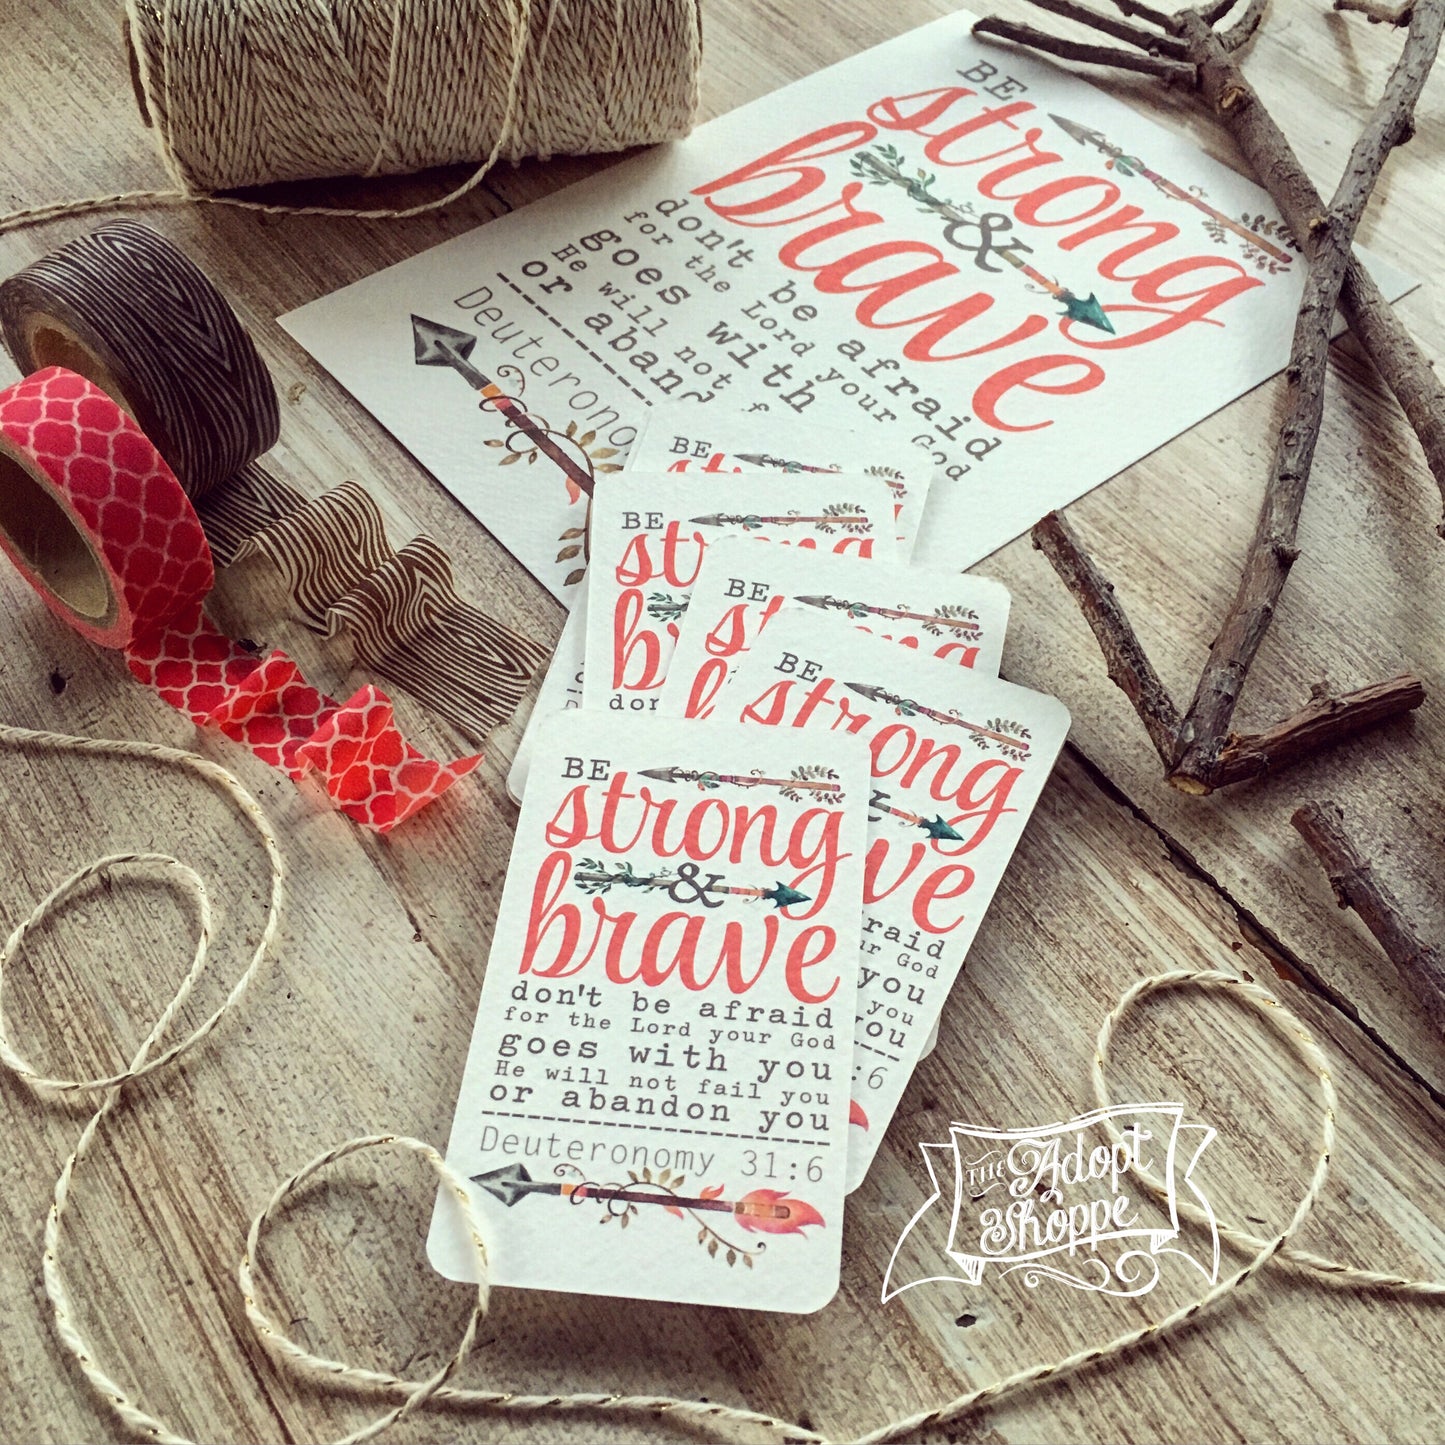 BE
strong
&
brave
don't be afraid
for the Lord your God
goes with you
He will not
or aband
Deuterono
BE
BE
st
b
don
BE
st
BE
strong
&
ve
raid
ur God
you
you
you
:6
BE
strong
&
brave
don't be afraid
for the Lord your God
goes with you
He will not fail you
or abandon you
Deuteronomy 31:6
THE Adopt
Shoppe